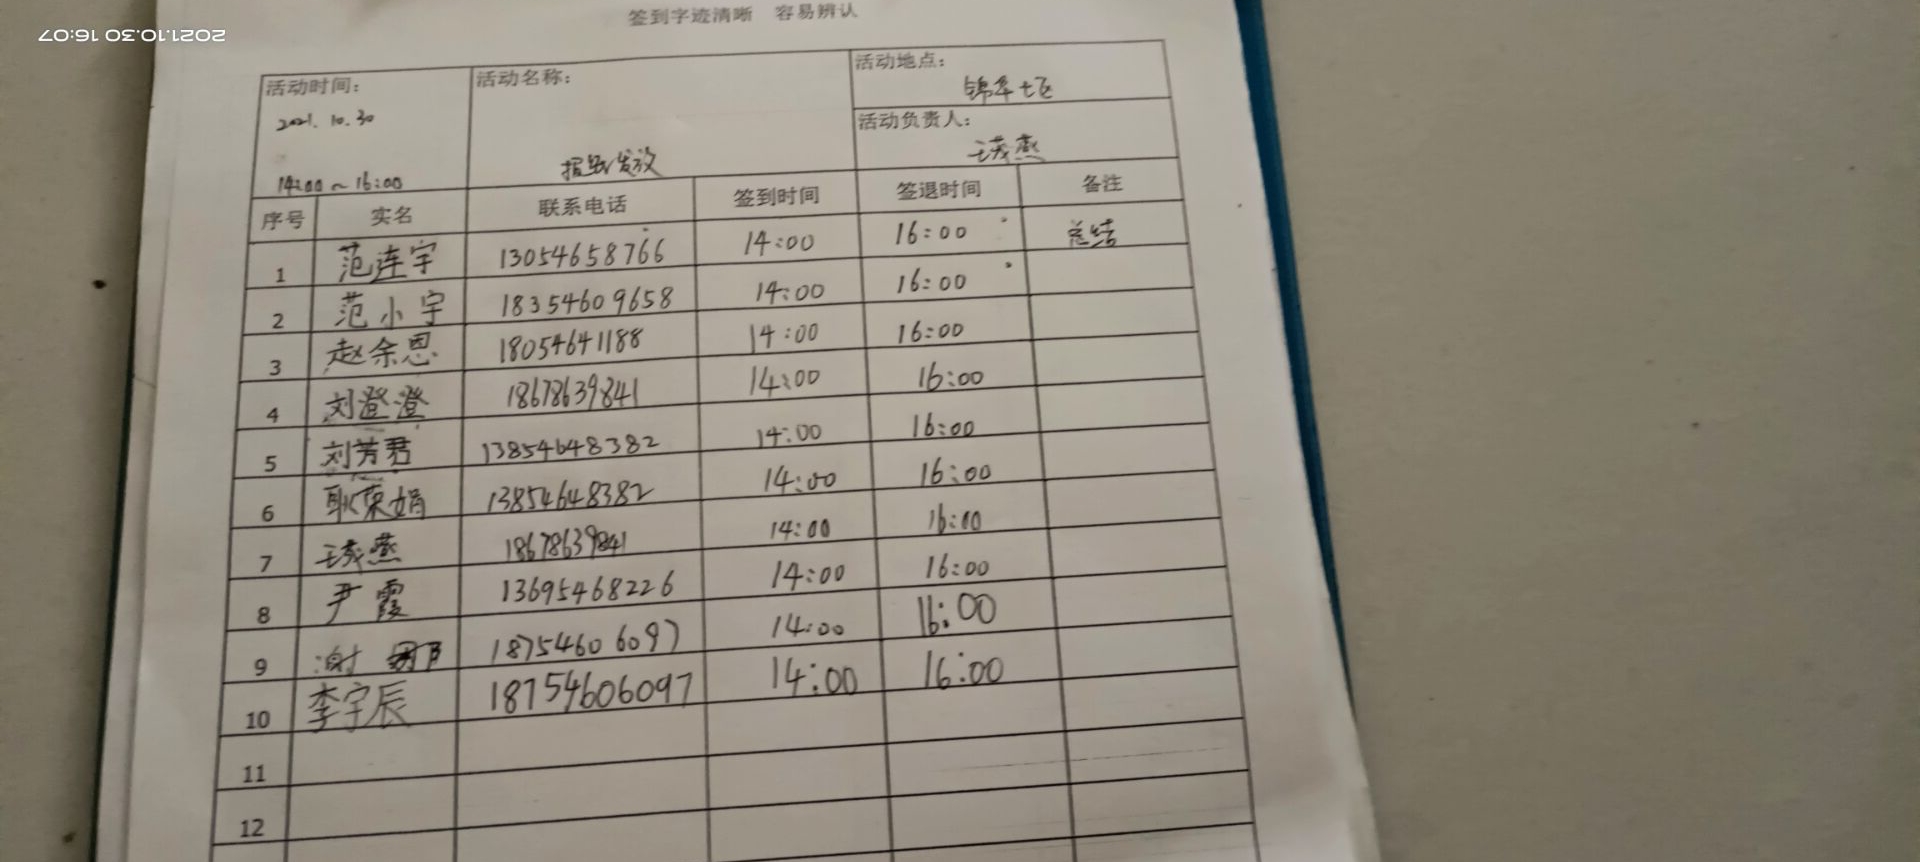 签到字迹清晰 容易辨认
2021.10.30 16:07
活动时间: 活动名称: 活动地点:
锦华七区
2021.10.30 活动负责人:
报纸发放 王茂燕
14:00~16:00
序号 实名 联系电话 签到时间 签退时间 备注
1 范连宇 13054658766 14:00 16:00 总结
2 范小宇 18354609658 14:00 16:00
3 赵余恩 18054641188 14:00 16:00
4 刘澄澄 18678639841 14:00 16:00
5 刘芳君 13854648382 14:00 16:00
6 耿荣娟 13854648382 14:00 16:00
7 王茂燕 18678639841 14:00 16:00
8 尹霞 13695468226 14:00 16:00
9 谢 18754606097 14:00 16:00
10 李宇辰 18754606097 14:00 16:00
11
12